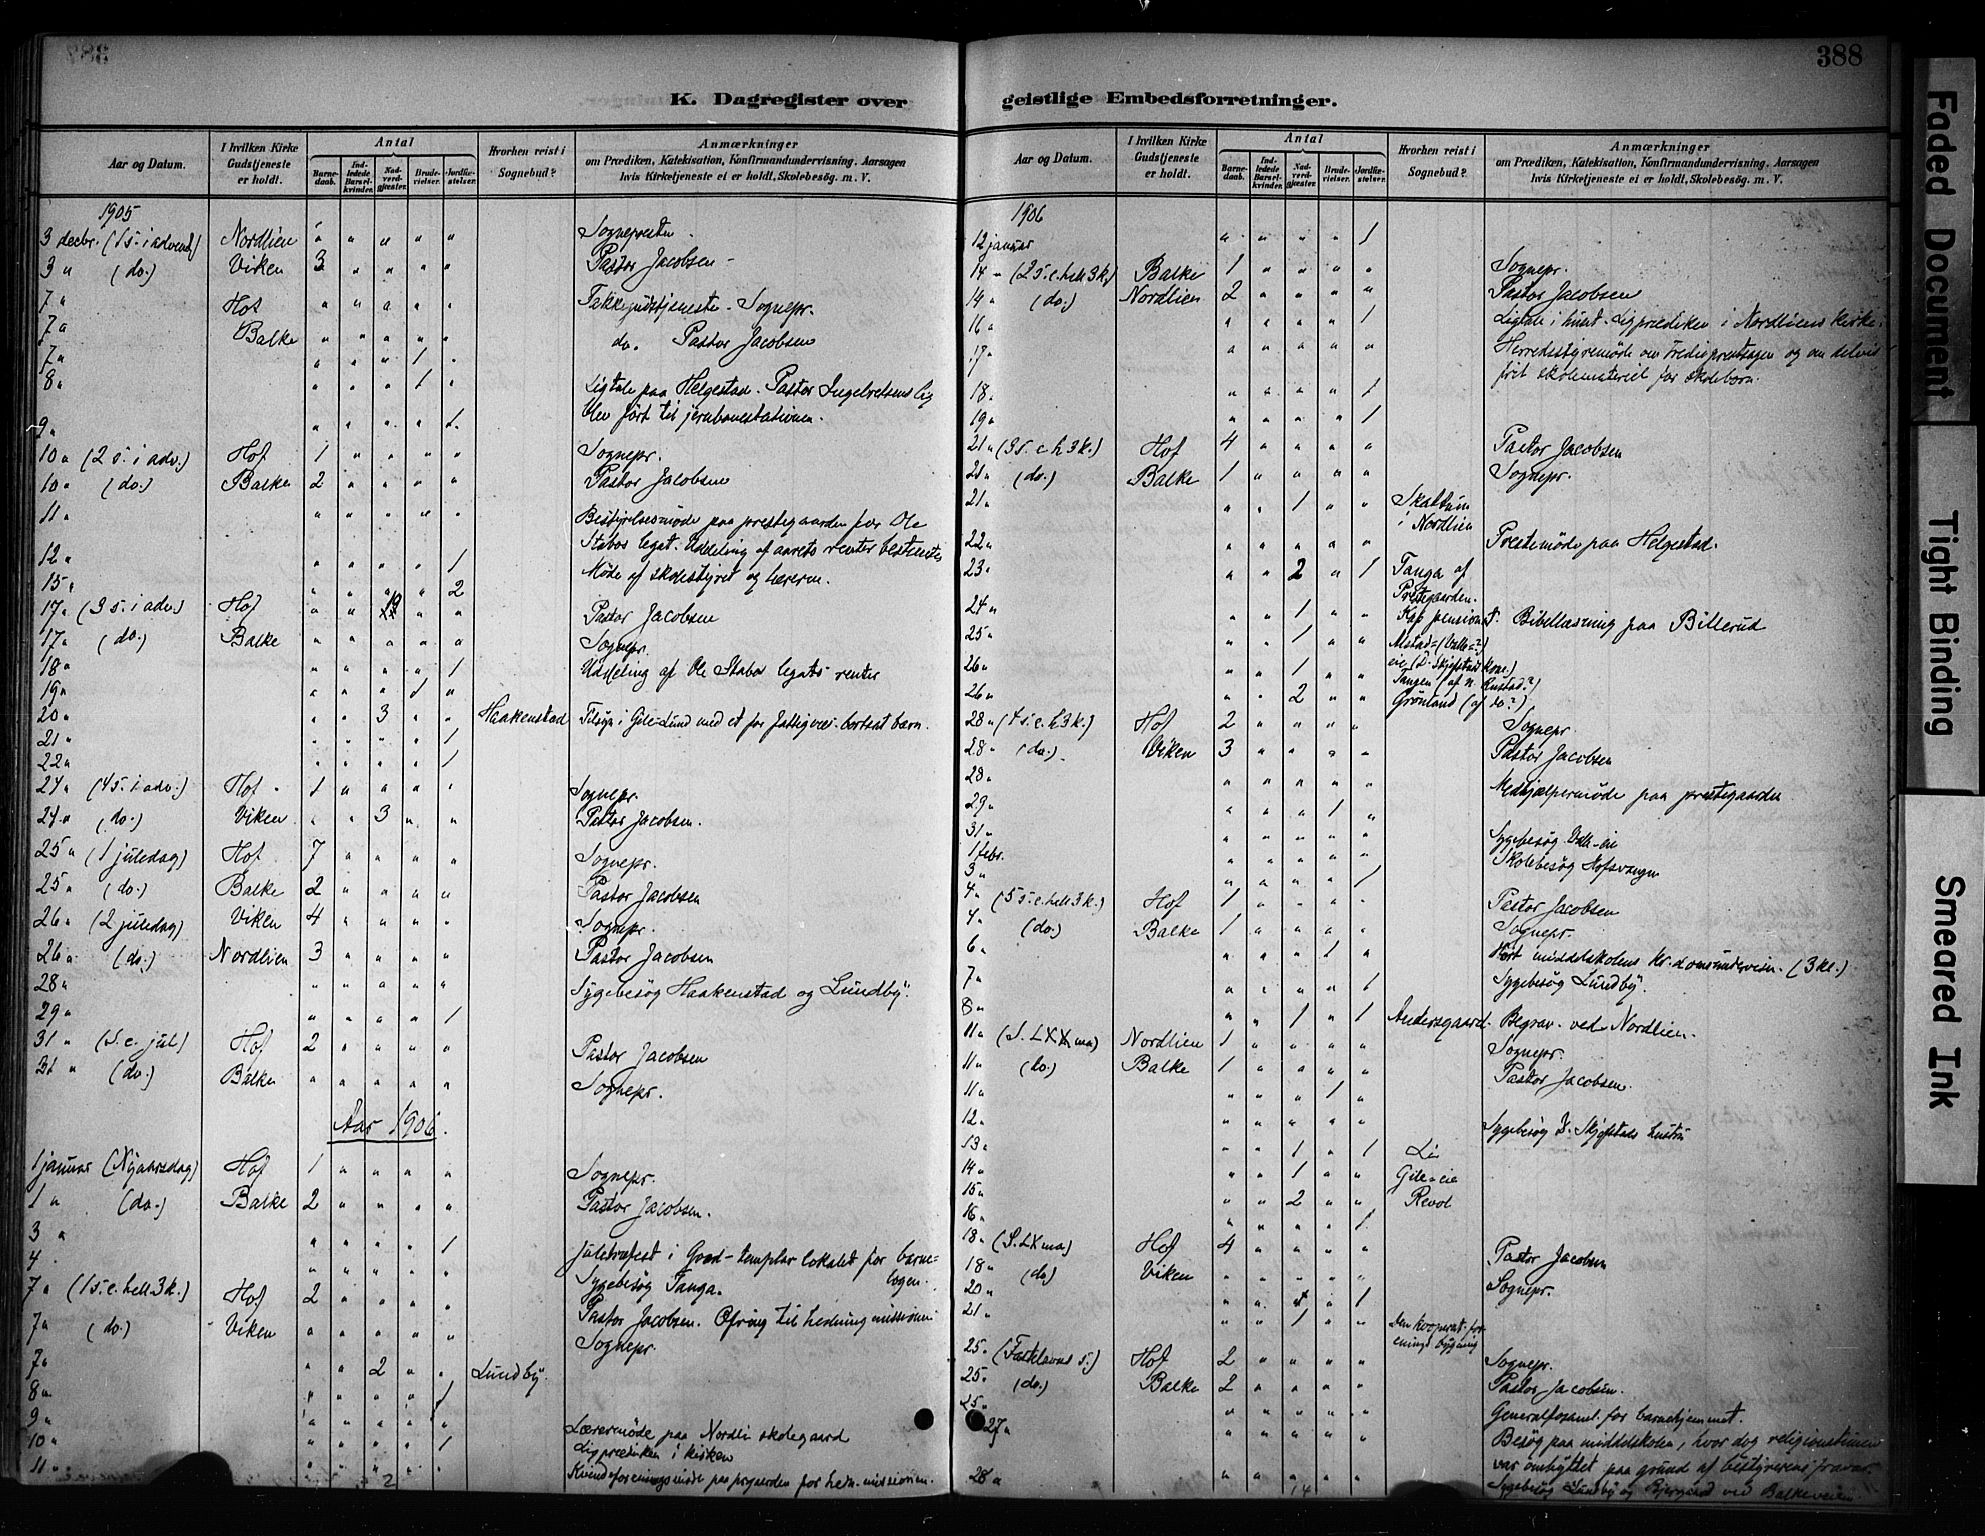 388
K. Dagregister over geistlige Embedsforretninger.
Aar og Datum. I hvilken Kirke Gudstjeneste er holdt. Antal Barnedaab. Indledede Barselkvinder. Nadverdgjester. Brudevielser. Jordfæstelser. Hvorhen reist i Sognebud? Anmærkninger om Prædiken, Katekisation, Konfirmandundervisning, Aarsagen hvis Kirketjeneste ei er holdt, Skolebesög. m. V.
1905
3 decbr. (1 s. i advent) Nordlien " " " " Sognepresten
3 " (do.) Viken 3 " " " " Pastor Jacobsen
7 " Hof " " " " " Takkegudstjeneste. Sognepr.
7 " Balke " " " " " do. Pastor Jacobsen
7 " " " " 1 "
8 " " " " 1 " Ligtale paa Helgestad. Pastor Ingelvetsens lig
blev fört til jernbanestationen.
9 " " " " " 1
10 " (2 s. i adv.) Hof 1 " " " " Sognepr.
10 " (do.) Balke 2 " " " " Pastor Jacobsen
11 " " " " " " Bestyrelsesmøde paa prestegaarden for Ole
Stabos legat. Uddeling af aarets renter bestemtes
12 " " " " " 1 Møde af skolestyret og lærerne.
15 " " " " " 2
17 " (3 s. i adv.) Hof " " 19 " " Pastor Jacobsen
17 " (do.) Balke " " " " " Sognepr.
18 " " " " " 1 Uddeling af Ole Stabos legats renter
19 " " " " 1 "
20 " " " 3 " " Haakenstad Tilsyn i Gile-Lund med et for fattigvæs. bortsat barn.
21 " " " " " 1
22 " " " " " 1
24 " (4 s. i adv.) Hof 1 " " " " Sognepr.
24 " (do.) Viken " " 3 " " Pastor Jacobsen.
25 " (1 juledag) Hof 7 " " " " Sognepr.
25 " (do.) Balke 2 " " " " Pastor Jacobsen
26 " (2 juledag) Viken 4 " " " " Sognepr.
26 " (do.) Nordlien 3 " " " " Pastor Jacobsen
28 " " " " " " Sygebesøg Haakenstad og Lundby.
29 " " " " " 1
31 " (S. e. jul) Hof 2 " " " " Pastor Jacobsen
31 " (do.) Balke " " " " " Sognepr.
Aar 1906.
1 januar (Nyaarsdag) Hof 1 " " " " Sognepr.
1 " (do.) Balke 2 " " " " Pastor Jacobsen.
3 " " " " " 1 Juletræfest i Good-templar lokalet for barne-
logen.
4 " " " " " Sygebesøg Tanga.
7 " (1 s. e. hell. 3 k.) Hof 2 " " " " Pastor Jacobsen. Ofring til hedningmissionen
7 " (do.) Viken " " " " " Sognepr.
7 " " " 2 " " Lundby.
8 " " " " " 1
9 " " " " " " Lærermøde paa Nordli skolegaard
10 " " " " " 1 Ligprædiken i kirken
11 " Kvindeforeningsmøde paa prgaarden for hedn. missionen.
2
Aar og Datum. I hvilken Kirke Gudstjeneste er holdt. Antal Barnedaab. Indledede Barselkvinder. Nadverdgjester. Brudevielser. Jordfæstelser. Hvorhen reist i Sognebud? Anmærkninger om Prædiken, Katekisation, Konfirmandundervisning, Aarsagen hvis Kirketjeneste ei er holdt, Skolebesög. m. V.
1906
12 januar " " " " 1
14 " (2 s. e. hell. 3 k.) Balke 1 " " " " Sognepr.
14 " (do.) Nordlien 2 " " " " Pastor Jacobsen
16 " " " " " 1 Ligtale i huset. Ligprædiken i Nordliens kirke.
17 " " " " " " Herredsstyremøde om Tredieprestsagen og om delvis
frit skolemateriel for skolebørn.
18 " " " " " 1
19 " " " " " 1
21 " (3 s. e. h 3 k.) Hof 4 " " " " Pastor Jacobsen
21 " (do.) Balke 1 " " " " Sognepr.
21 " " " 1 " " Skattum
i Nordlien
22 " " " " " " Prestemøde paa Helgestad.
23 " " " 2 " 1 Tanga af
Prestgaarden.
24 " " " 1 " " Kap pensionat. Bibellæsning paa Billerud
25 " " " 1 " "
26 " " " 1 " " eie (D. Skjefstads kone.)
26 " " " 2 " " Tangen (af n. Rustad?)
Grønland (af do?)
28 " (4 s. e. h 3 k.) Hof 2 " " " " Sognepr.
28 " (do.) Viken 3 " " " " Pastor Jacobsen
28 " " " " " " Medhjælpermøde paa prestegaarden
29 " " " " 1 "
31 " " " " " " Sygebesøg
1 febr. " " " " " Skolebesøg Hofsvangen
3 " " " " " 1
4 " (5 s. e. hell. 3 k.) Hof 1 " " " " Pastor Jacobsen
4 " (do.) Balke 1 " " " " Sognepr.
6 " " " " 1 " Hørt middelskolens kr.domsundervisn. (3 kl.)
7 " " " " " 1 Sygebesøg Lundby.
8 " " " 1 " 1 Andersgaard. Begrav. ved Nordlien.
11 " (S. LXXma) Nordlien 1 " " " " Sognepr.
11 " (do.) Balke 1 " " " " Pastor Jacobsen.
11 " " " " 1 "
12 " " " " " " Sygebesøg D. Skjefstads hustru
13 " " " 1 " 1
14 " " " 1 " " Gile-eie
15 " " " 2 " " Revol
16 " " " " " 1
18 " (S. LXma) Hof 4 " " " " Pastor Jacobsen
18 " (do) Viken " " " " " Sognepr.
20 " " " " " 1
21 " " " 1 " " Den kooperat. for-
enings bygning
25 " (Fastelavns s.) Hof 2 " " " " Sognepr.
25 " (do.) Balke 2 " " " " Pastor Jacobsen.
25 " " " " " " Generalforsaml. for barnehjemmet.
27 " " " " " " Besøg paa middelskolen, hvor dog religionstimen
var ombyttet paa grund af bestyrerens fravær.
28 " " " " " " Sygebesøg Lundby og Bjergend ved Balkeveien.
14
Faded Document
Tight Binding
Smeared Ink